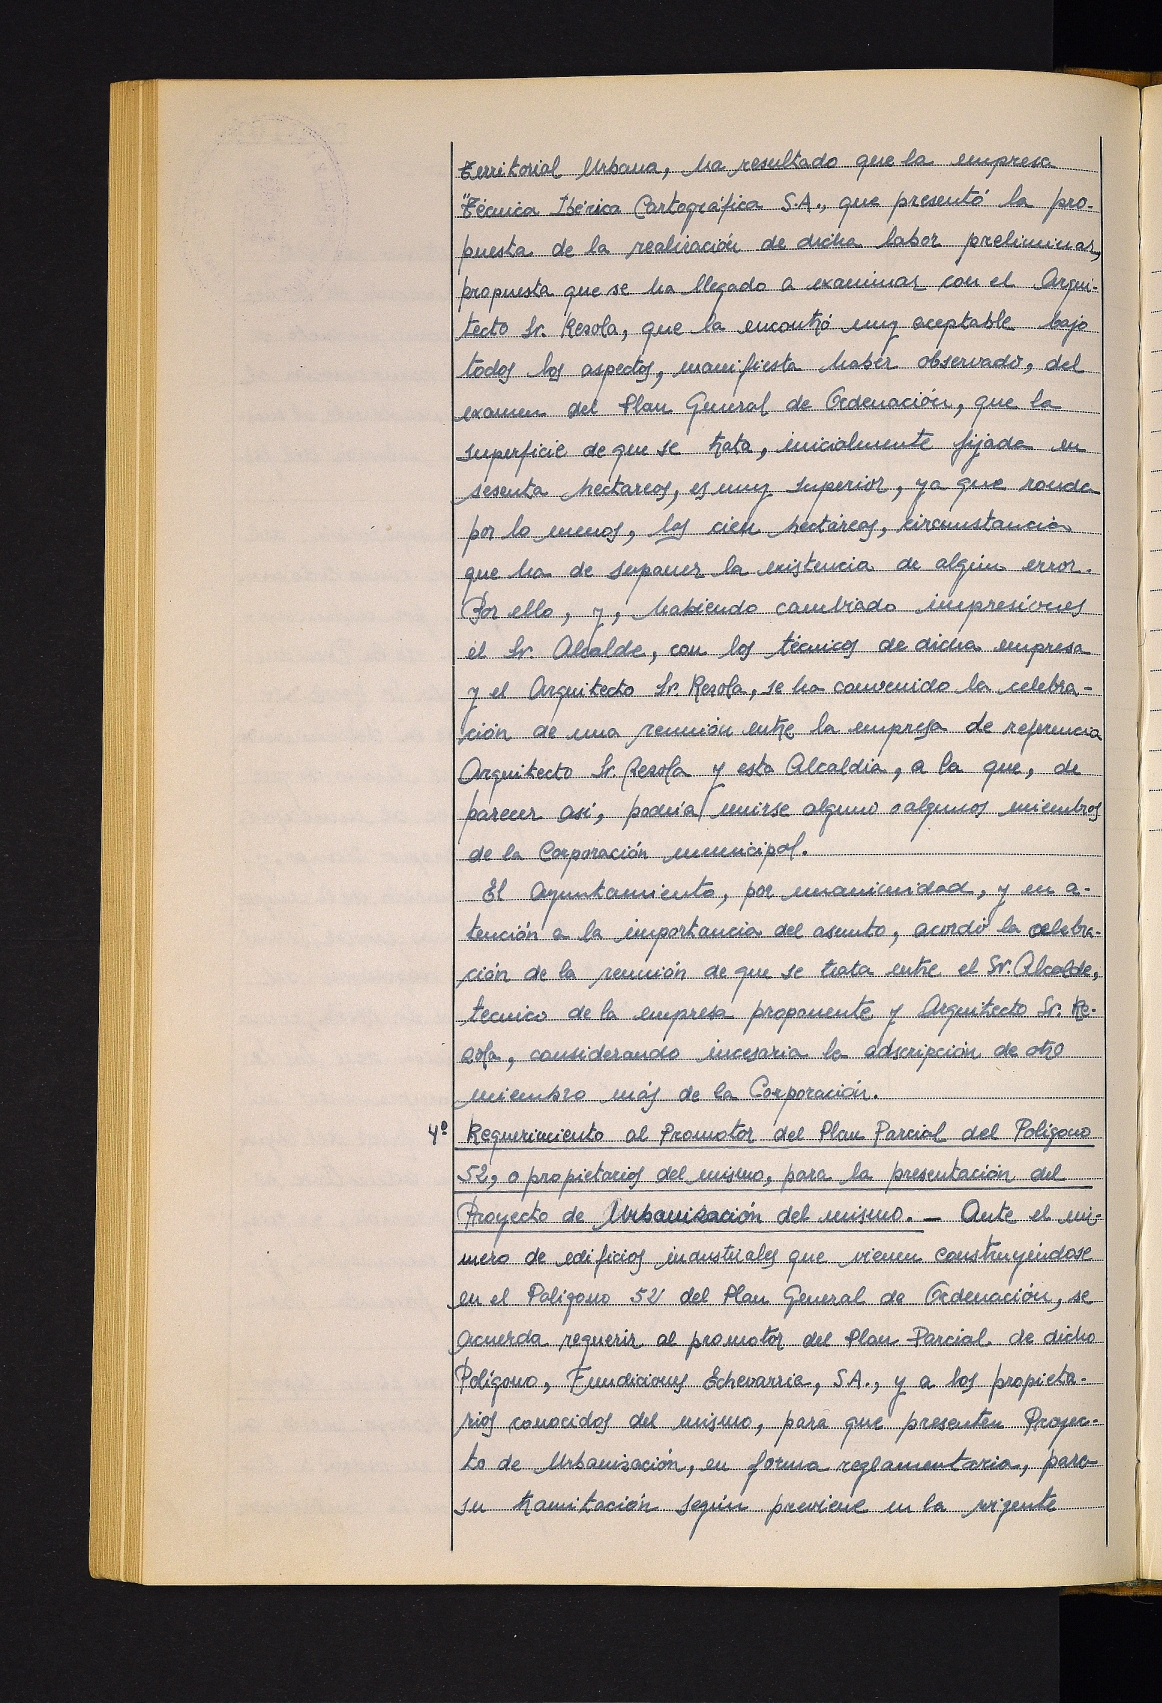 Territorial Urbana, ha resultado que la empresa
"Técnica Ibérica Cartográfica S.A., que presentó la pro-
puesta de la realización de dicha labor preliminar,
propuesta que se ha llegado a examinar con el Arqui-
tecto Sr. Rezola, que la encontró muy aceptable bajo
todos los aspectos, manifiesta haber observado, del
examen del Plan General de Ordenación, que la
superficie de que se trata, inicialmente fijada en
sesenta hectareas, es muy superior, ya que ronda
por lo menos, las cien hectáreas, circunstancia
que ha de suponer la existencia de algún error.
Por ello, y, habiendo cambiado impresiones
el Sr. Alcalde, con los técnicos de dicha empresa
y el Arquitecto Sr. Rezola, se ha convenido la celebra-
ción de una reunión entre la empresa de referencia
Arquitecto Sr. Rezola y esta Alcaldia, a la que, de
parecer así, podría unirse alguno o algunos miembros
de la Corporación municipal.
El Ayuntamiento, por unanimidad, y en a-
tención a la importancia del asunto, acordó la celebra-
ción de la reunión de que se trata entre el Sr. Alcalde,
tecnico de la empresa proponente y Arquitecto Sr. Re-
zola, considerando incesaria la adscripción de otro
miembro más de la Corporación.
4º Requerimiento al Promotor del Plan Parcial del Polígono
52, o propietarios del mismo, para la presentación del
Proyecto de Urbanización del mismo. - Ante el nú-
mero de edificios industriales que vienen construyéndose
en el Poligono 52 del Plan General de Ordenación, se
acuerda requerir al promotor del Plan Parcial de dicho
Polígono, Fundiciones Echevarria, S.A., y a los propieta-
rios conocidos del mismo, para que presenten Proyec-
to de Urbanización, en forma reglamentaria, para
su tramitación según previene en la vigente